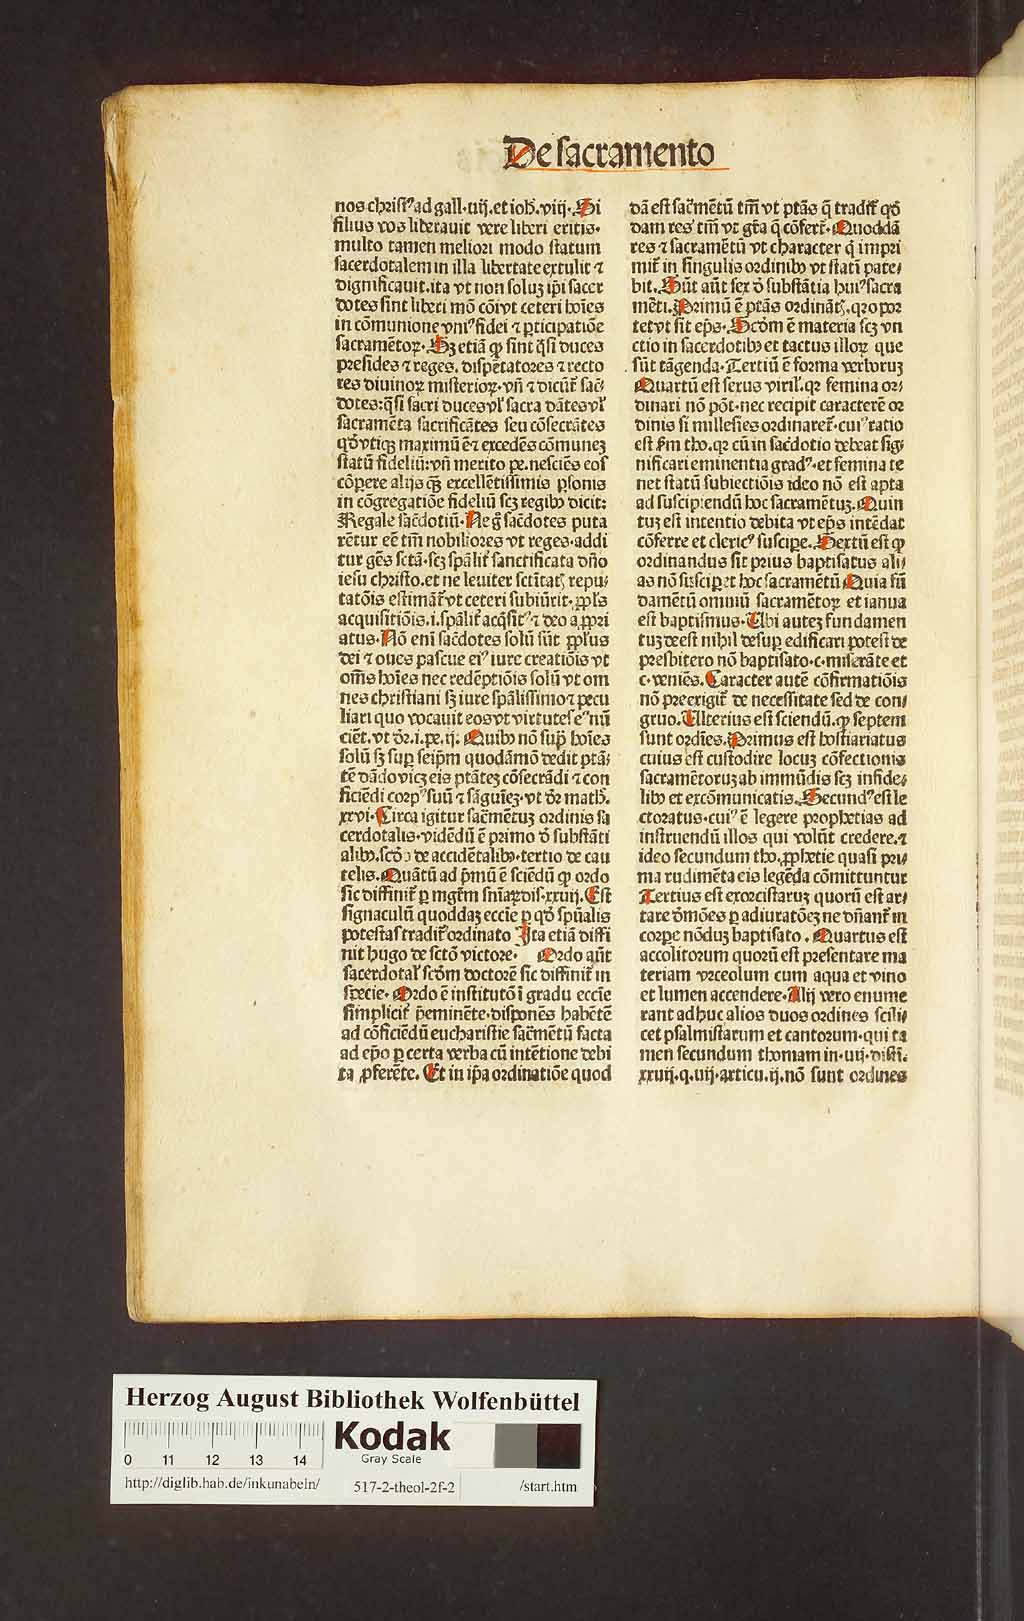 De sacramento
nos christꝰ ad gall·iiij. et ioh̄. viij· Si
filius vos liberauit vere liberi eritis·
multo tamen meliori modo statum
sacerdotalem in illa libertate extulit ⁊
dignificauit. ita vt non soluꝫ ip̄i sacer
dotes sint liberi mō cōi vt ceteri hoīes
in cōmunione vniꝰ fidei ⁊ ꝑticipatiōe
sacramētoꝝ· Sꝫ etiā ꝙ sint q̄si duces
presides ⁊ reges. dispētatores ⁊ recto
res diuinoꝝ misterioꝝ· vn̄ ⁊ dicūt᷑ sac̄
dotes: q̄si sacri duces vl᷑ sacra dātes vl᷑
sacramēta sacrificātes seu cōsecrātes
qd̓ vtiqꝫ maximū ē ⁊ excedēs cōmuneꝫ
statū fideliū: vn̄ merito pe. nesciēs eos
cōꝑere alijs qꝫ excellētissimis ꝑsonis
in cōgregatiōe fideliū scꝫ regibꝰ dicit:
Regale sac̄dotiū· Ne g̊ sac̄dotes puta
rētur eē tm̄ nobiliores vt reges· addi
tur gēs sctā· scꝫ sp̄alit᷑ sanctificata dn̄o
iesu christo. et ne leuiter sctitatꝭ repu/
tatōis estimāt᷑ vt ceteri subiūrit· ꝓpl̓s
acquisitiōis. i. sp̄alit᷑ acq̄sitꝰ ⁊ deo aꝓpri
atus· Nō eni sac̄dotes solū sūt ꝓpl̓us
dei ⁊ oues pascue eiꝰ iure creatiōis vt
om̄s hoīes nec redēptiōis solū vt om
nes christiani sꝫ iure sp̄alissimo ⁊ pecu
liari quo vocauit eos vt virtutes eꝰ nū
ciēt. vt dr̄. i. pe. ij. Quibꝰ nō suꝑ hoīes
solū sꝫ suꝑ seip̄m quodāmō dedit ptā/
tē dādo viceꝫ eis ptāteꝫ cōsecrādi ⁊ con
ficiēdi corpꝰ suū ⁊ sāguīeꝫ· vt dr̄ math̄.
xxvi· Circa igitur sac̄mētuꝫ ordinis sa
cerdotalis· vidēdū ē primo d̓ substāti
alibꝰ. scd̓o de accidētalibꝰ· tertio de cau
telis. Quātū ad p̄mū ē sciēdū ꝙ ordo
sic diffinit᷑ ꝑ mgr̄m sn̄iaꝝ dis. xxiiij. Est
signaculū quoddaꝫ eccīe ꝑ qd̓ spūalis
potestas tradit᷑ ordinato Ita etiā diffi
nit hugo de sctō victore· Ordo aūt
sacerdotal᷑ scd̓m doctorē sic diffinit᷑ in
specie· Ordo ē institutō ī gradu eccīe
simplicit᷑ p̄eminēte· disponēs habētē
ad cōficiēdū eucharistie sac̄mētū facta
ad ep̄o ꝑ certa verba cū intētione debi
ta ꝓferēte. Et in ip̄a ordinatiōe quod
dā est sac̄mētū tm̄ vt ptās q̄ tradit᷑ qd̓
dam res tm̄ vt gr̄a q̄ cōfert᷑. Quoddā
res ⁊ sacramētū vt character q̄ impri
mit᷑ in singulis ordinibꝰ vt statī pate/
bit. Sūt aūt sex d̓ substātia huiꝰ sacra
mēti. Primū ē ptās ordinātꝭ. qꝛ opor
tet vt sit ep̄s. Scd̓m ē materia scꝫ vn
ctio in sacerdotibꝰ et tactus illoꝝ que
sūt tāgenda· Tertiū ē forma verboruꝫ
Quartū est sexus viril᷑. qꝛ femina or/
dinari nō pōt· nec recipit caracterē or
dinis si millesies ordinaret᷑· cuiꝰ ratio
est fm̄ tho. qꝛ cū in sac̄dotio debeat sig/
nificari eminentia gradꝰ· et femina te
net statū subiectiōis ideo nō est apta
ad suscipiendū hoc sacramētuꝫ. Quin
tuꝫ est intentio debita vt ep̄s intēdat
cōferre et clericꝰ suscipe. Sextū est ꝙ
ordinandus sit prius baptisatus ali/
as nō susciperet hoc sacramētū Quia fū
damētū omniū sacramētoꝝ et ianua
est baptismus. Ubi auteꝫ fundamen
tuꝫ deest nihil desuꝑ edificari potest de
presbitero nō baptisato· c· miserāte et
c· veniēs. Caracter autē cōfirmatiōis
nō preexigit᷑ de necessitate sed de con/
gruo. Ulterius est sciendū. ꝙ septem
sunt ordīes. Primus est hostiariatus
cuius est custodire locuꝫ cōfectionis
sacramētoruꝫ ab immūdis scꝫ infide/
libꝰ et excōmunicatis. Secundꝰ est le
ctoratus· cuiꝰ ē legere prophetias ad
instruendū illos qui volūt credere. ⁊
ideo secundum tho. ꝓphetie quasi pri/
ma rudimēta eis legēda cōmittuntur
Tertius est exorcistaruꝫ quorū est ar/
tare dmōes ꝑ adiuratōeꝫ ne dn̄ant᷑ in
corpe nōduꝫ baptisato. Quartus est
accolitorum quorū est presentare ma
teriam vrceolum cum aqua et vino
et lumen accendere· Alij vero enume
rant adhuc alios duos ordines scili/
cet psalmistarum et cantorum· qui ta
men secundum thomam in· iiij· disti.
xxiiij. q. iij· articu. ij. nō sunt ordines
Herzog August Bibliothek Wolfenbüttel
0 11 12 13 14
Kodak
Gray Scale
http://diglib.hab.de/inkunabeln/ 517-2-theol-2f-2 /start.htm